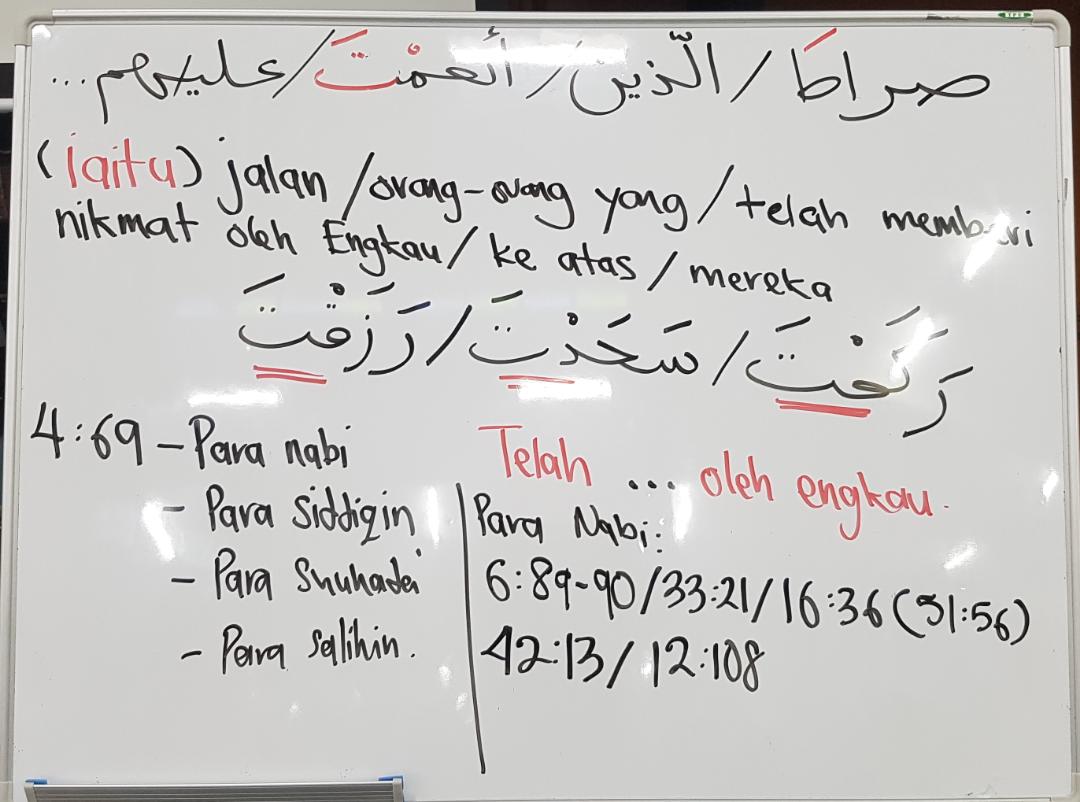 صراطَ / الّذين / أنعمْتَ / عليهم ...
(iaitu) jalan / orang-orang yang / telah memberi
nikmat oleh Engkau / ke atas / mereka
رَكَعْتَ / سَجَدْتَ / رَزَقْتَ
Telah ... oleh engkau.
4:69 - Para nabi
- Para siddiqin
- Para Shuhada
- Para salihin.
Para Nabi:
6:89-90/33:21/16:36 (51:56)
42:13/12:108